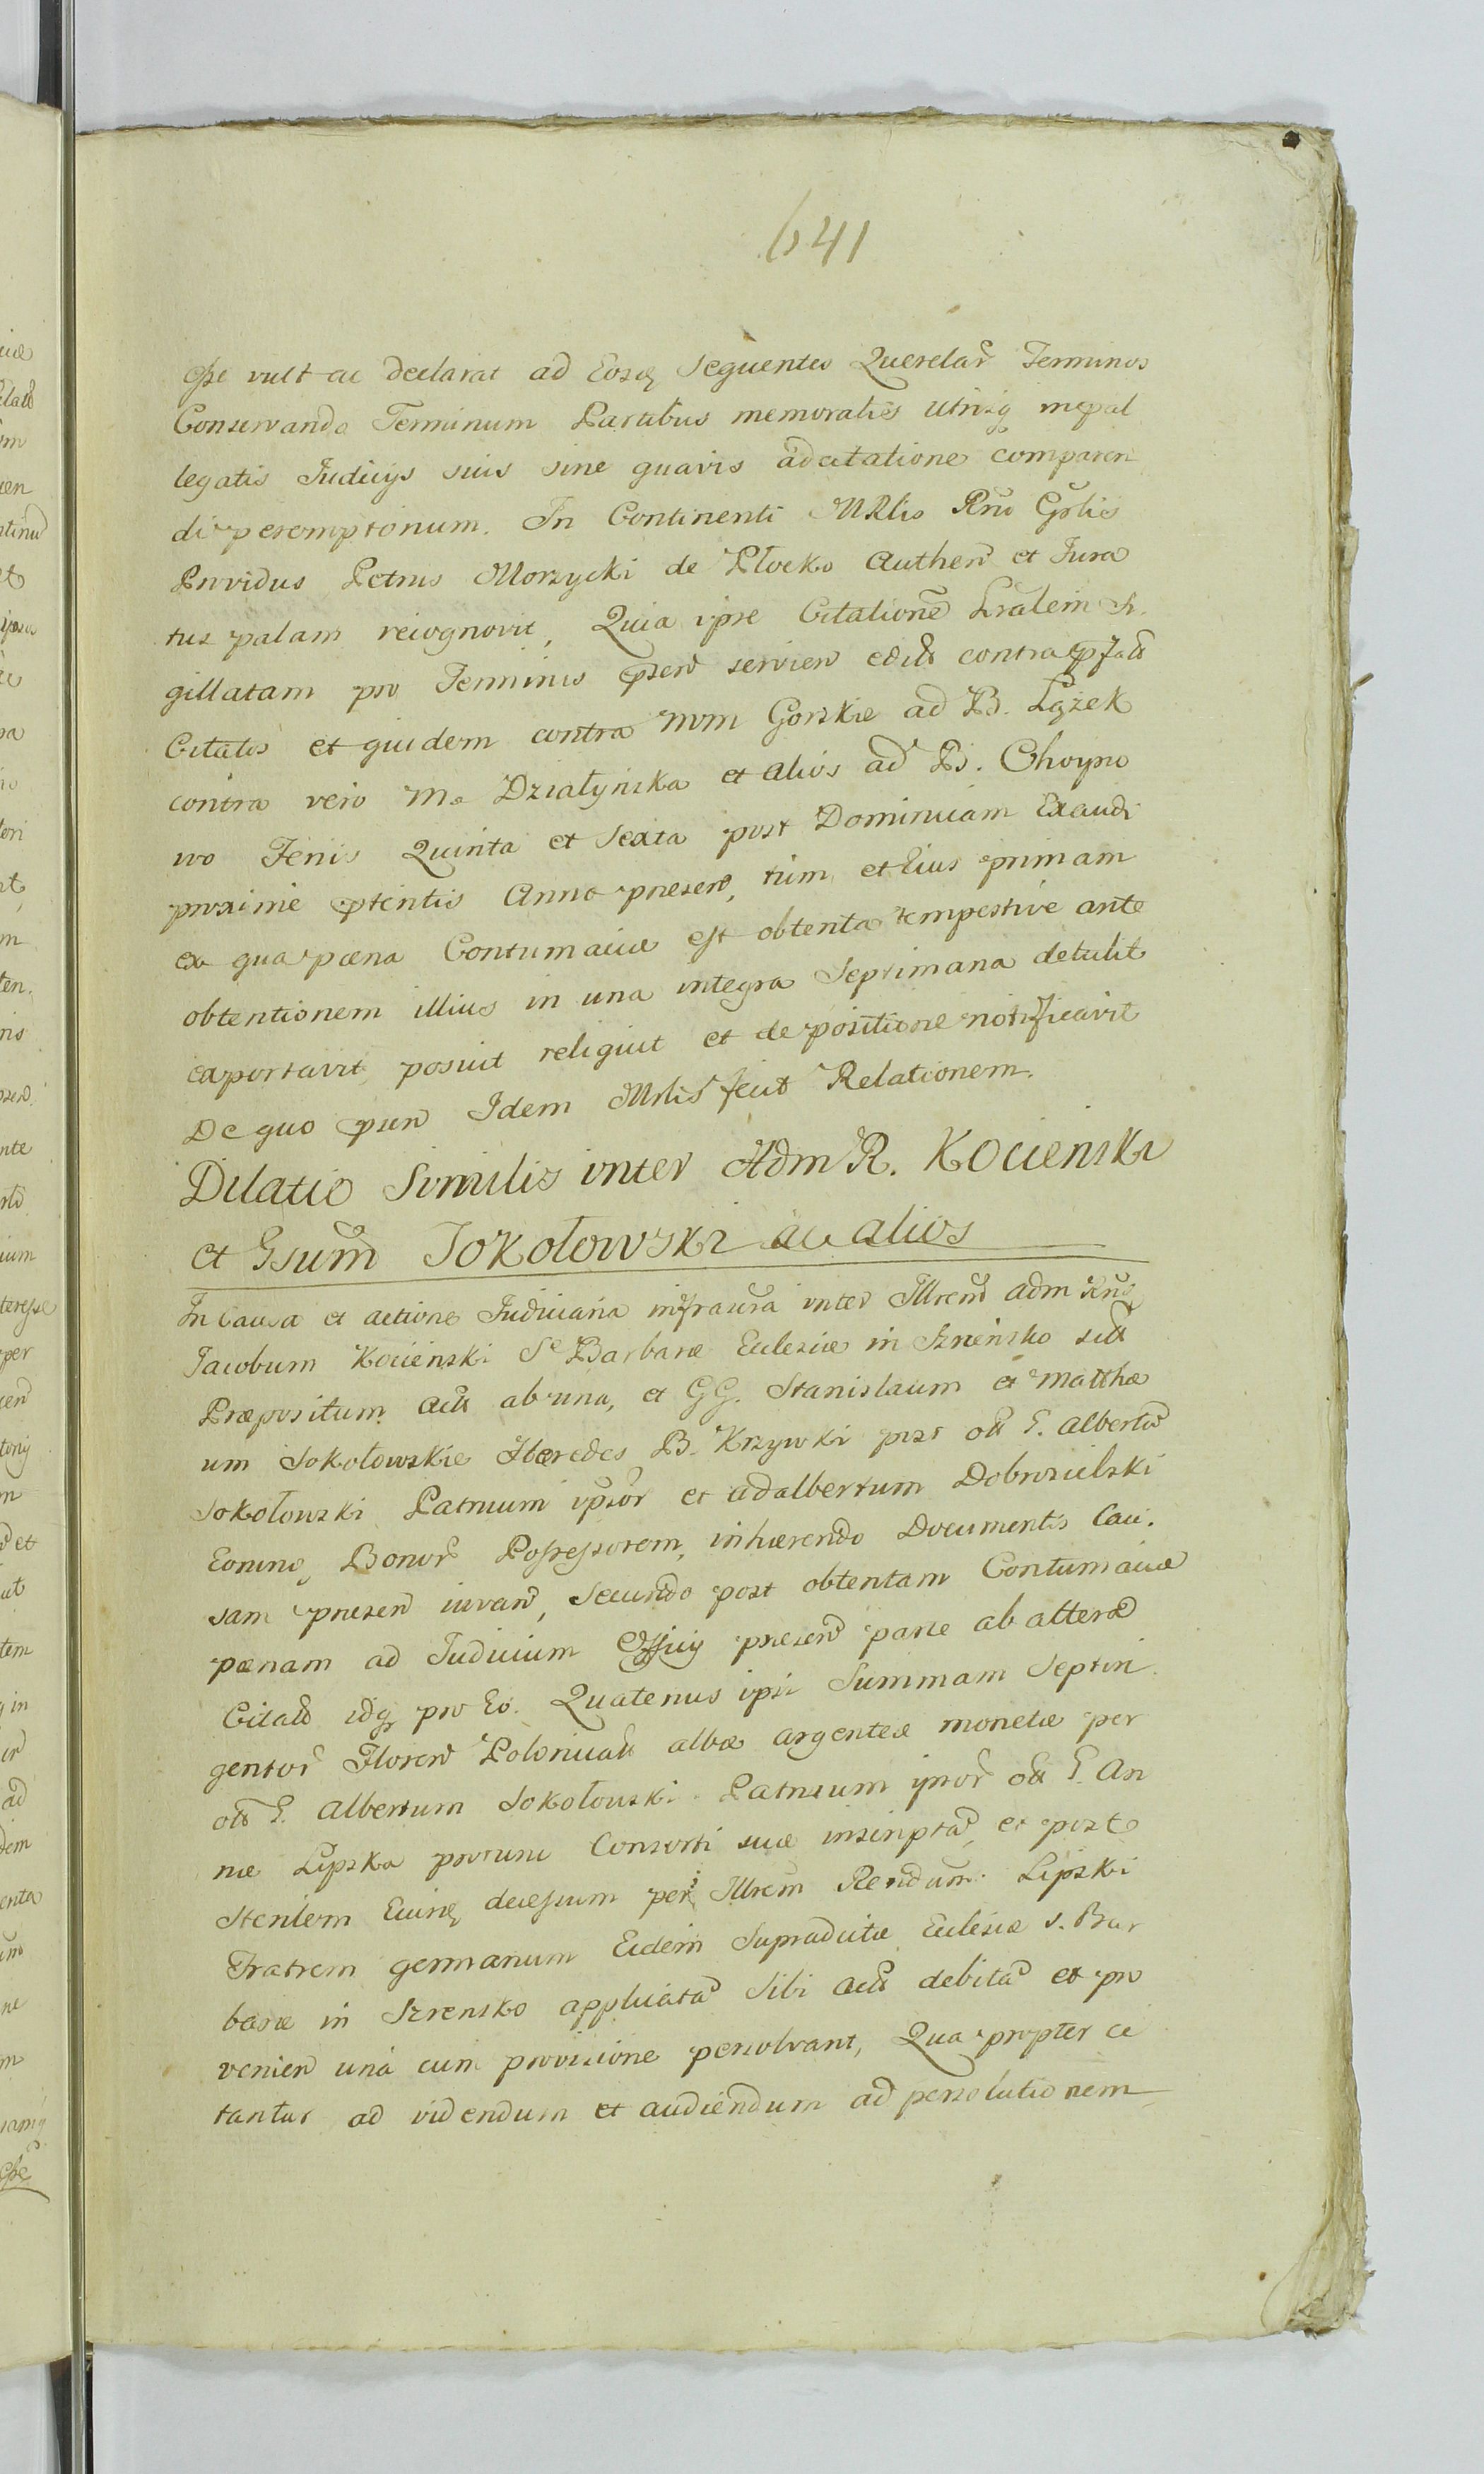 641
esse vult ac declarat ad Eosq Sequentes Querelar Terminos
Conservando Terminum Partibus memoratis Utrisq
legatis Judicijs suis sine quavis adcitatione comparen
di peremptorium. In Continenti Mrlis Rni Grlis
Providus Petrus Morzycki de Płocko Authen et Jura
tus palam recognovit, Quia ipse Citatione Lralem Si
gillatam pro Terminis psen servien edita contra
Citatos et quidem contra Mm Gorskie ad B. Lążek
contra vero M. Działyńska et alios ad B. Choyno
wo Feris Quinta et Sexta post Dominicam Exaudi
proxime ptentis Anno presen, tum et Eius primam
ex qua pæna Contumaciæ est obtenta tempestive ante
obtentionem illius in una integra Septimana detulit
exportavit, posuit reliquit et de positione notificavit
De quo psen Idem Mrlis fecit Relationem.
Dilatio Similis inter Adm R. Kocienski
et Gsum Sokołowski ac alios
In Causa et actione Judiciaria infrascra inter Illrem adm Rnd
Jacobum Kocienski Se Barbaræ Ecclesiæ in Szreńsko
Præpositum act ab una, et GG. Stanislaum et Matthæ
um Sokołowskie Hæredes B. Krzywki post ol G. Albertu
Sokołowski Patruum ipsor et Adalbertum Dobrosielski
Eorunq Bonor Possessorem, inhærendo Documentis Cau.
sam presen iuvan, Secundo post obtentam Contumaciæ
pænam ad Judicium Officij presen parte ab altera
Citato idq pro Eo. Quatenus ipsi Summam Septin
gentor Floren Polonical albæ argenteæ monetæ per
ol G. Albertum Sokołowski Patruum ipsor ol G. An
næ Lipska Consorti suæ inscripta, et post
Sterilem Eiusq decessum per Illrem Rendum Lipski
Fratrem germanum Eidem Supradictæ Ecclesiæ S. Bar
baræ in Szrensko applicata Sibi act debita et pro
venien una cum provisione persolvant, Qua propter ci
tantur ad videndum et audiendum ad persolutionem